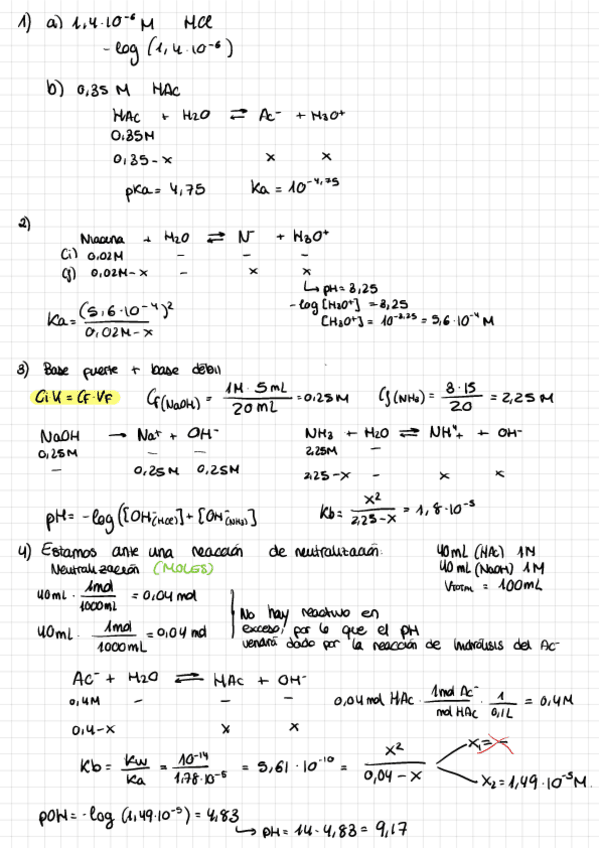 1) a) 1,4·10⁻⁶ M HCl
-log (1,4·10⁻⁶)
b) 0,35 M HAc
HAc + H2O ⇌ Ac⁻ + H3O⁺
0,35M
0,35-x x x
pKa = 4,75 Ka = 10⁻⁴'⁷⁵
2)
Niacina + H2O ⇌ N⁻ + H3O⁺
Ci) 0,02M - - -
Cf) 0,02M-x - x x
↳ pH = 3,25
-log[H3O⁺] = 3,25
[H3O⁺] = 10⁻³'²⁵ = 5,6·10⁻⁴ M
Ka = (5,6·10⁻⁴)² / 0,02M-x
3) Base fuerte + base débil
Ci Vi = CF·VF Cf(NaOH) = 1M·5mL / 20mL = 0,25M Cf(NH3) = 3·15 / 20 = 2,25 M
NaOH → Na⁺ + OH⁻ NH3 + H2O ⇌ NH⁴₊ + OH⁻
0,25M - - 2,25M -
- 0,25M 0,25M 2,25-x - x x
pH = -log([OH⁻(HCl)] + [OH⁻(NH3)] Kb = x² / 2,25-x = 1,8·10⁻⁵
4) Estamos ante una reacción de neutralización: 40mL (HAc) 1M
Neutralización (MOLES) 40 mL (NaOH) 1M
VTOTAL = 100mL
40mL · 1mol / 1000mL = 0,04 mol
40mL · 1mol / 1000mL = 0,04 mol
No hay reactivo en
exceso, por lo que el pH
vendrá dado por la reacción de hidrólisis del Ac⁻
Ac⁻ + H2O ⇌ HAc + OH⁻
0,4M - - - 0,04mol HAc · 1mol Ac⁻ / mol HAc · 1 / 0,1L = 0,4M
0,4-x x x
Kb = Kw / Ka = 10⁻¹⁴ / 1,78·10⁻⁵ = 5,61·10⁻¹⁰ = x² / 0,04-x
x₁ = -
x₂ = 1,49·10⁻⁵ M
pOH = -log (1,49·10⁻⁵) = 4,83
↳ pH = 14-4,83 = 9,17